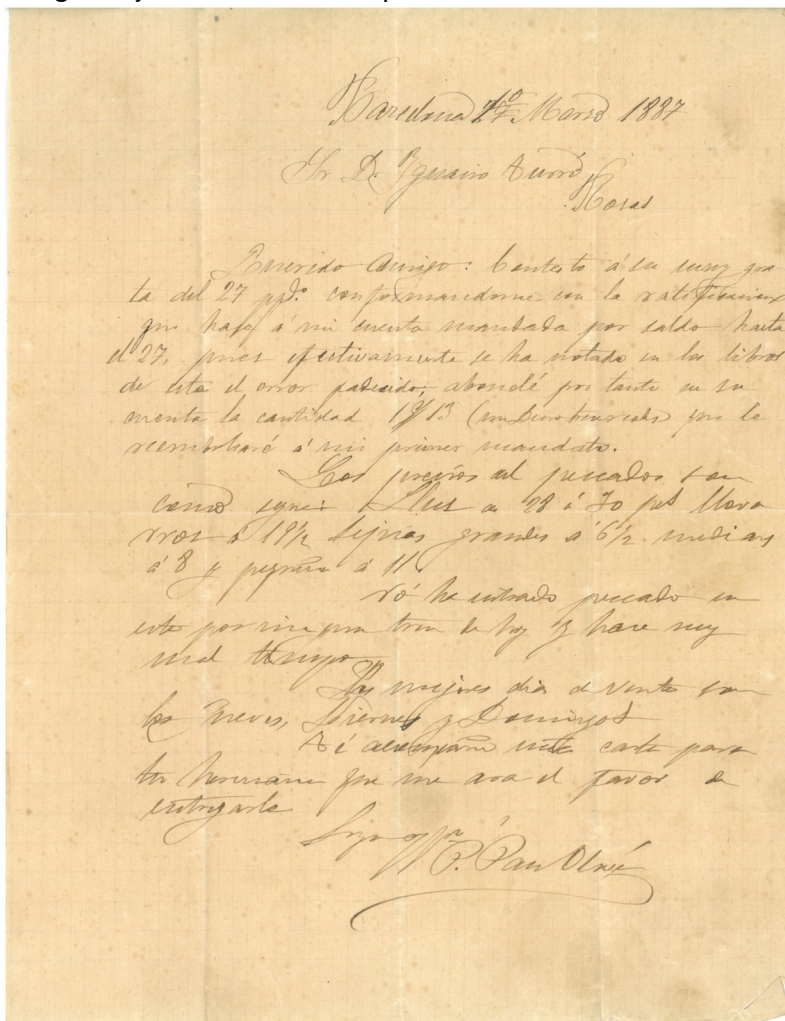 Barcelona 1º Marzo 1887
Sr D. Ignacio
Rosas
Querido Amigo: Contesto á su muy gra
ta del 27 ppdº. conformandome con la
que haya á mi cuenta mandada por saldo hasta
el 27, pues efectivamente se ha notado en los libros
de esta el error padecido, abondé por tanto en su
cuenta la cantidad 13 que le
reembolsaré á mi primer mandato.
Los precios del pescados son
como sigue: Llus de 28 á 30 pts
á 19½ Sepias grandes á 6½ medianas
á 8 y pequeña á 11
Nó ha entrado pescado en
este por ningun tren de hoy y hace muy
mal tiempo
Los mejores dias de venta son
los Jueves, Viernes y Domingos
carta para
tu hermano que me ara el favor de
entregarla
P. Pau